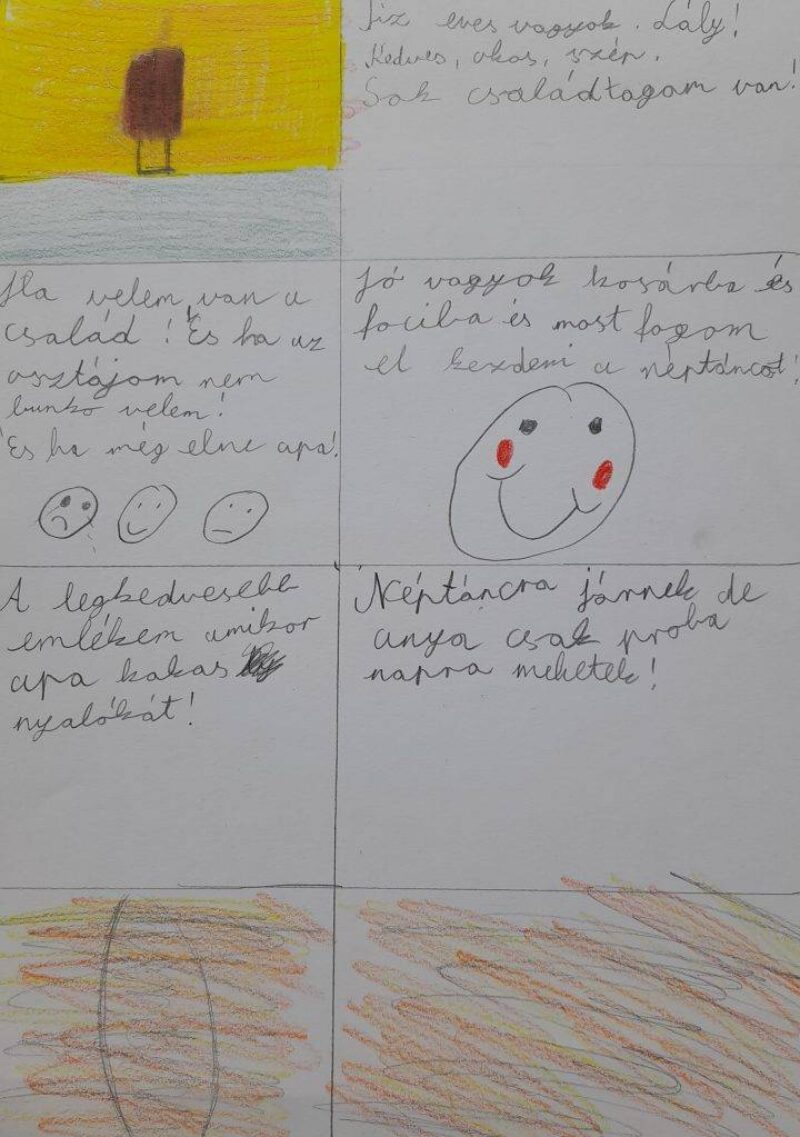 Tíz éves vagyok. Lány!
Kedves, okos, szép.
Sok családtagom van!
Ha velem van a
család! És ha az
osztájom nem
bunko velem!
És ha még élne apa!
Jó vagyok kosárba és
fociba és most fogom
el kezdeni a néptáncot!
A legkedvesebb
emlékem amikor
apa kakas
nyalókát!
Néptáncra járnék de
anya csak proba
napra mehetek!